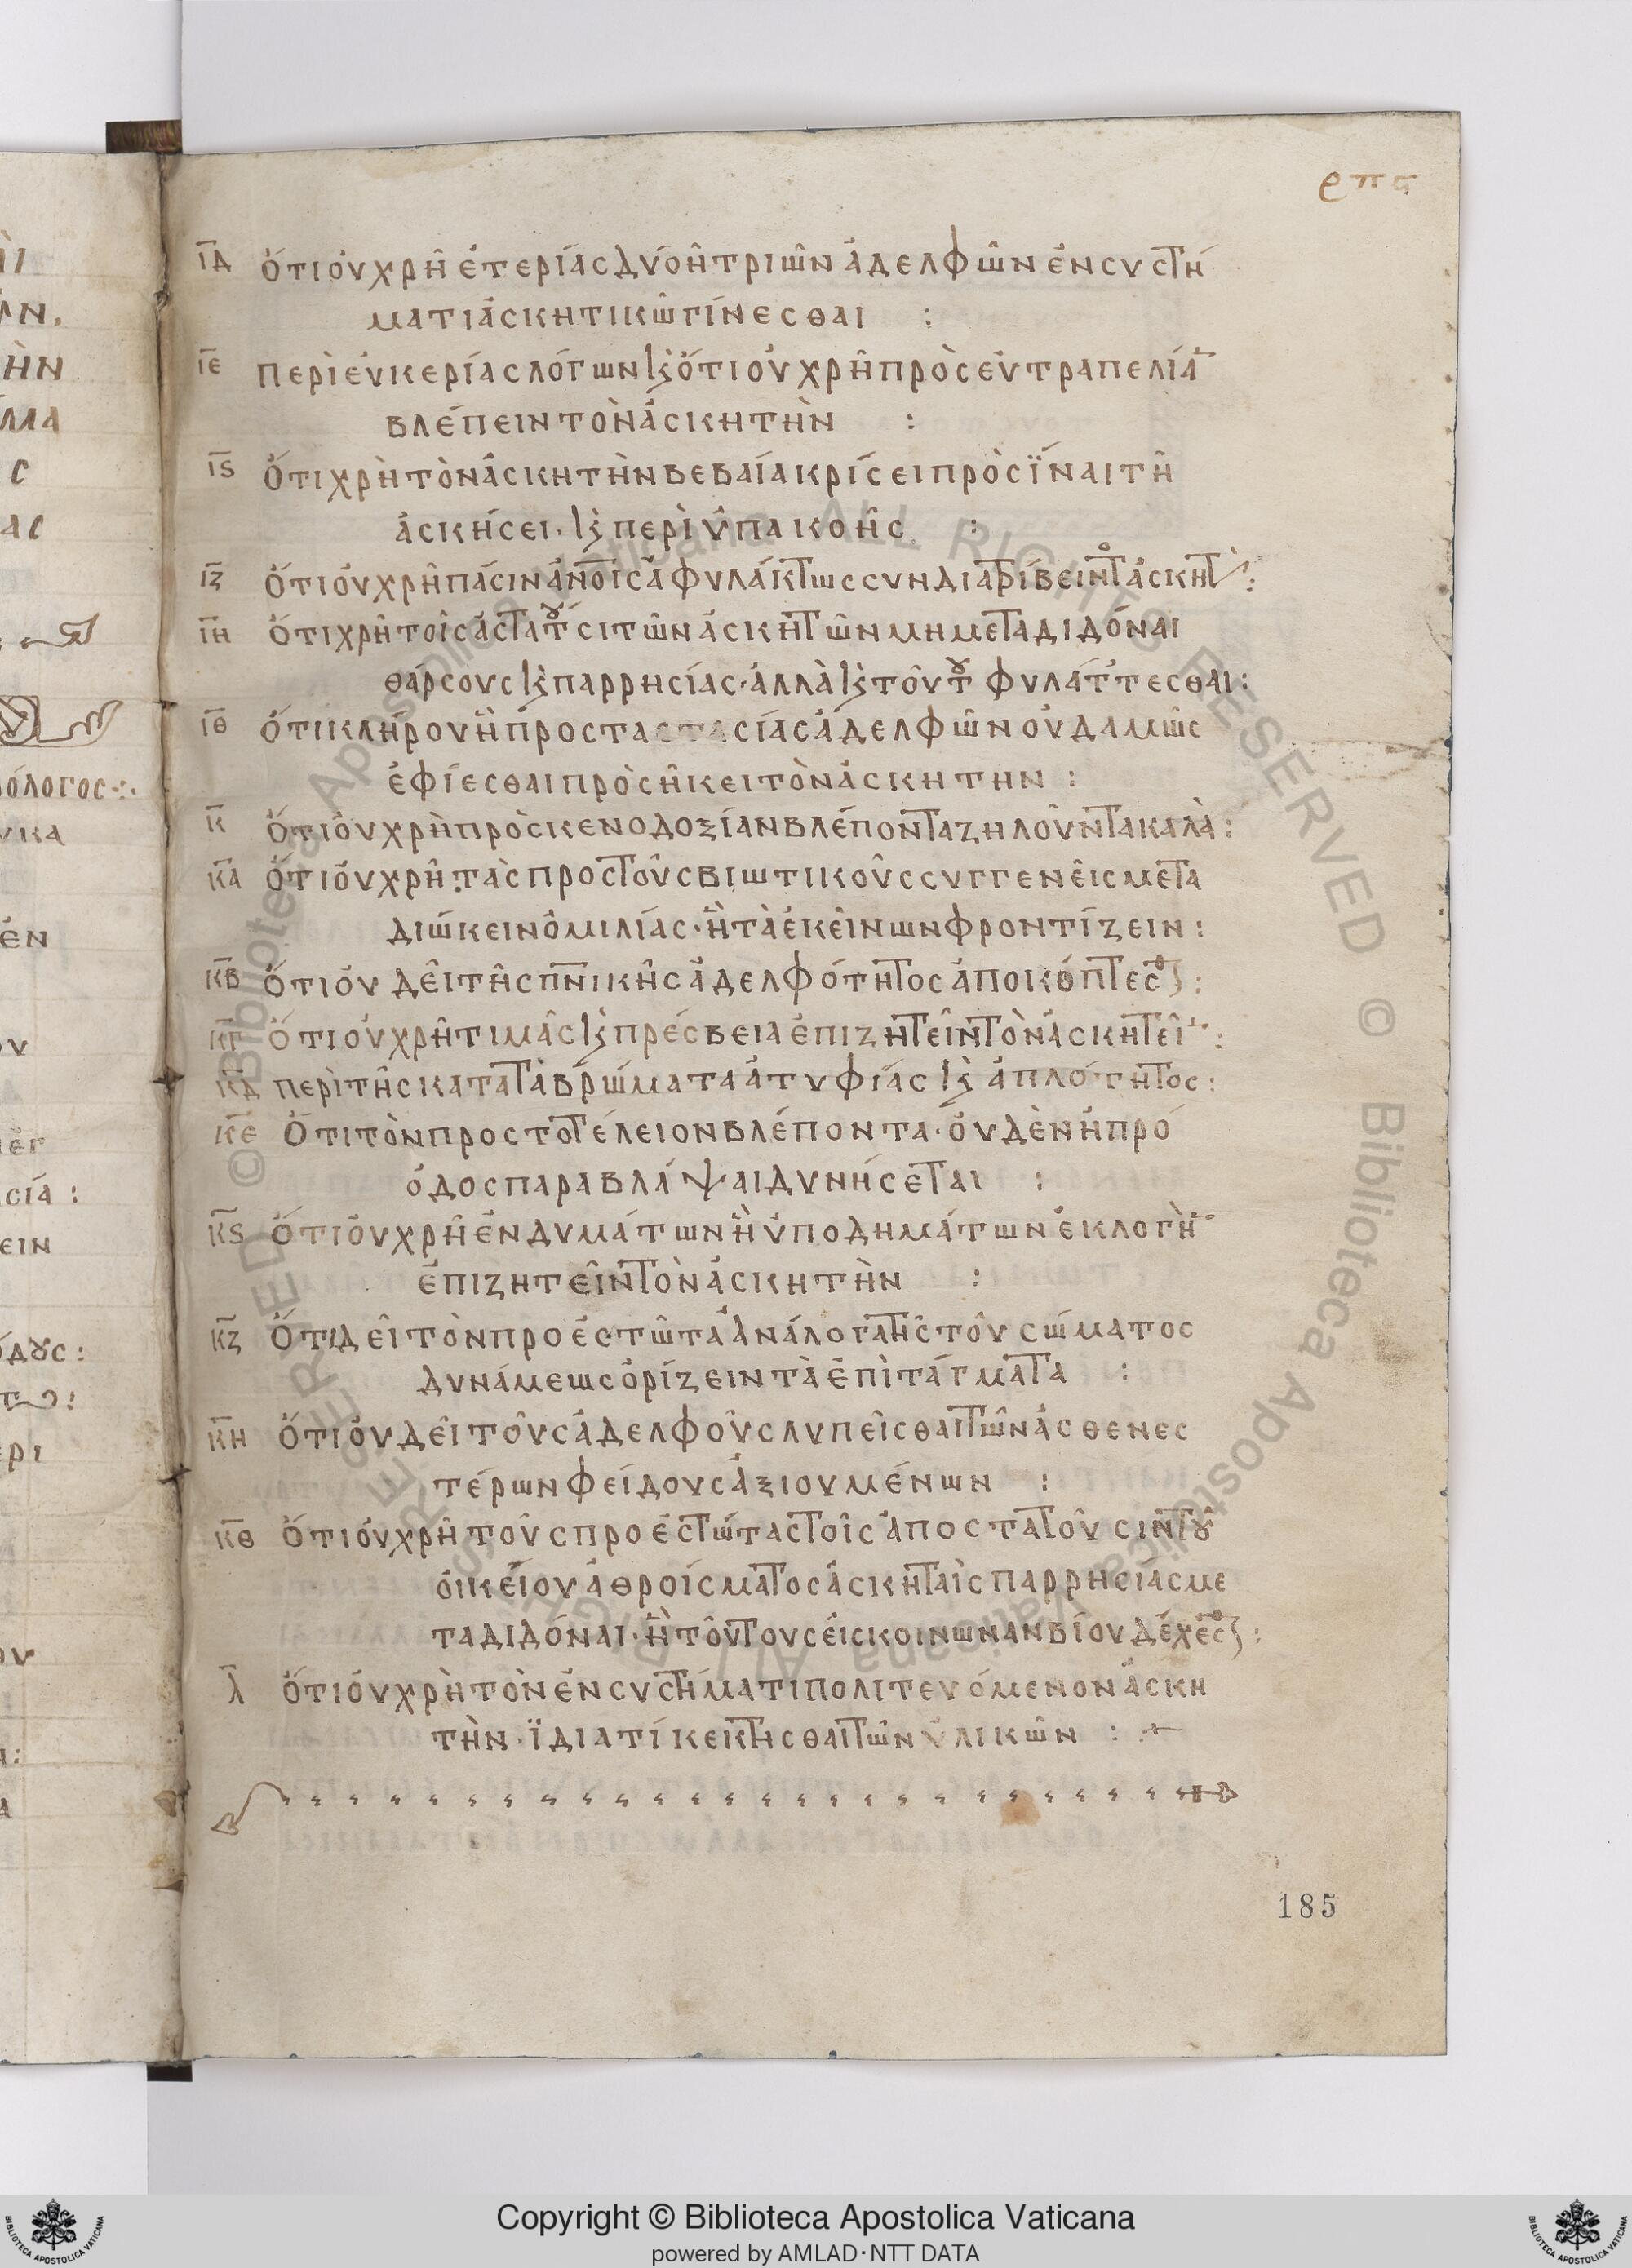 ρπϛ
ΙΔ ὅτι οὐ χρὴ ἑτερίας δύο ἢ τριῶν ἀδελφῶν ἐν συστή
ματι ἀσκητικῶ γίνεσθαι :
ΙΕ περὶ εὐκερίας λόγων κ̀ ὅτι οὐ χρὴ πρὸς εὐτραπελία̅
βλέπειν τὸν ἀσκητὴν :
ΙϚ ὅτι χρὴ τὸν ἀσκητὴν βεβαία κρίσει προσϊέναι τῆ
ἀσκήσει · κ̀ περὶ ὑπακοῆς :
ΙΖ ὅτι οὐ χρὴ πάσιν ἀν̅οις ἀφυλάκτως συνδιατρίβειν τὸ ἀσκητ :
ΙΗ ὅτι χρὴ τοῖς ἀστατοῦσι τῶν ἀσκητῶν μὴ μεταδιδόναι
θάρσους κ̀ παρρησίας · ἀλλὰ κ̀ τούτȣ φυλάττεσθαι :
ΙΘ ὅτι κλήρου ἢ προστασίας ἀδελφῶν οὐδαμῶς
ἐφίεσθαι προσῆκει τὸν ἀσκητην :
Κ ὅτι οὐ χρὴ πρὸς κενοδοξίαν βλέποντα ζηλοῦν τα καλὰ :
ΚΑ ὅτι οὐ χρὴ τὰς προς τοὺς βιωτικοὺς συγγενεῖς μετα
διώκειν ὁμιλίας · ἢ τὰ ἐκείνων φροντίζειν :
ΚΒ ὅτι οὐ δεῖ τῆς πν̅ικῆς ἀδελφότητος ἀποκόπτεσθ :
ΚΓ ὅτι οὐ χρὴ τιμὰς κ̀ πρέσβεια ἐπιζητεῖν τὸν ἀσκητεῖ̅ :
ΚΔ περὶ τῆς κατα τὰ βρώματα ἀτυφίας κ̀ ἁπλότητος :
ΚΕ ὅτι τὸν προς το τέλειον βλέποντα · οὐδὲν ἡ πρό
οδος παραβλάψαι δυνήσεται :
ΚϚ ὅτι οὐ χρὴ ἐνδυμάτων ἢ ὑποδημάτων ἐκλογὴ̅
ἐπιζητεῖν τὸν ἀσκητὴν :
ΚΖ ὅτι δεῖ τὸν προεστῶτα ἀνάλογα τῆς τοῦ σώματος
δυνάμεως ὁρίζειν τὰ ἐπὶτάγματα :
ΚΗ ὅτι οὐ δεῖ τοὺς ἀδελφοὺς λυπεῖσθαι τῶν ἀσθενες
τέρων φείδους ἀξιουμένων :
ΚΘ ὅτι οὐ χρὴ τοὺς προεστώτας τοῖς ἀποστατοῦσιν τȣ̂
οἰκείου ἀθροίσματος ἀσκηταῖς παρρησίας με
ταδιδόναι · ἢ τούτους εἰς κοινωναν βίου δέχεσθ :
Λ ὅτι οὐ χρὴ τὸν ἐν συστήματι πολιτευόμενον ἀσκη
τὴν · ϊδια τί κεκτησθαι τῶν ὑλικῶν :
185
Copyright © Biblioteca Apostolica Vaticana
powered by AMLAD·NTT DATA